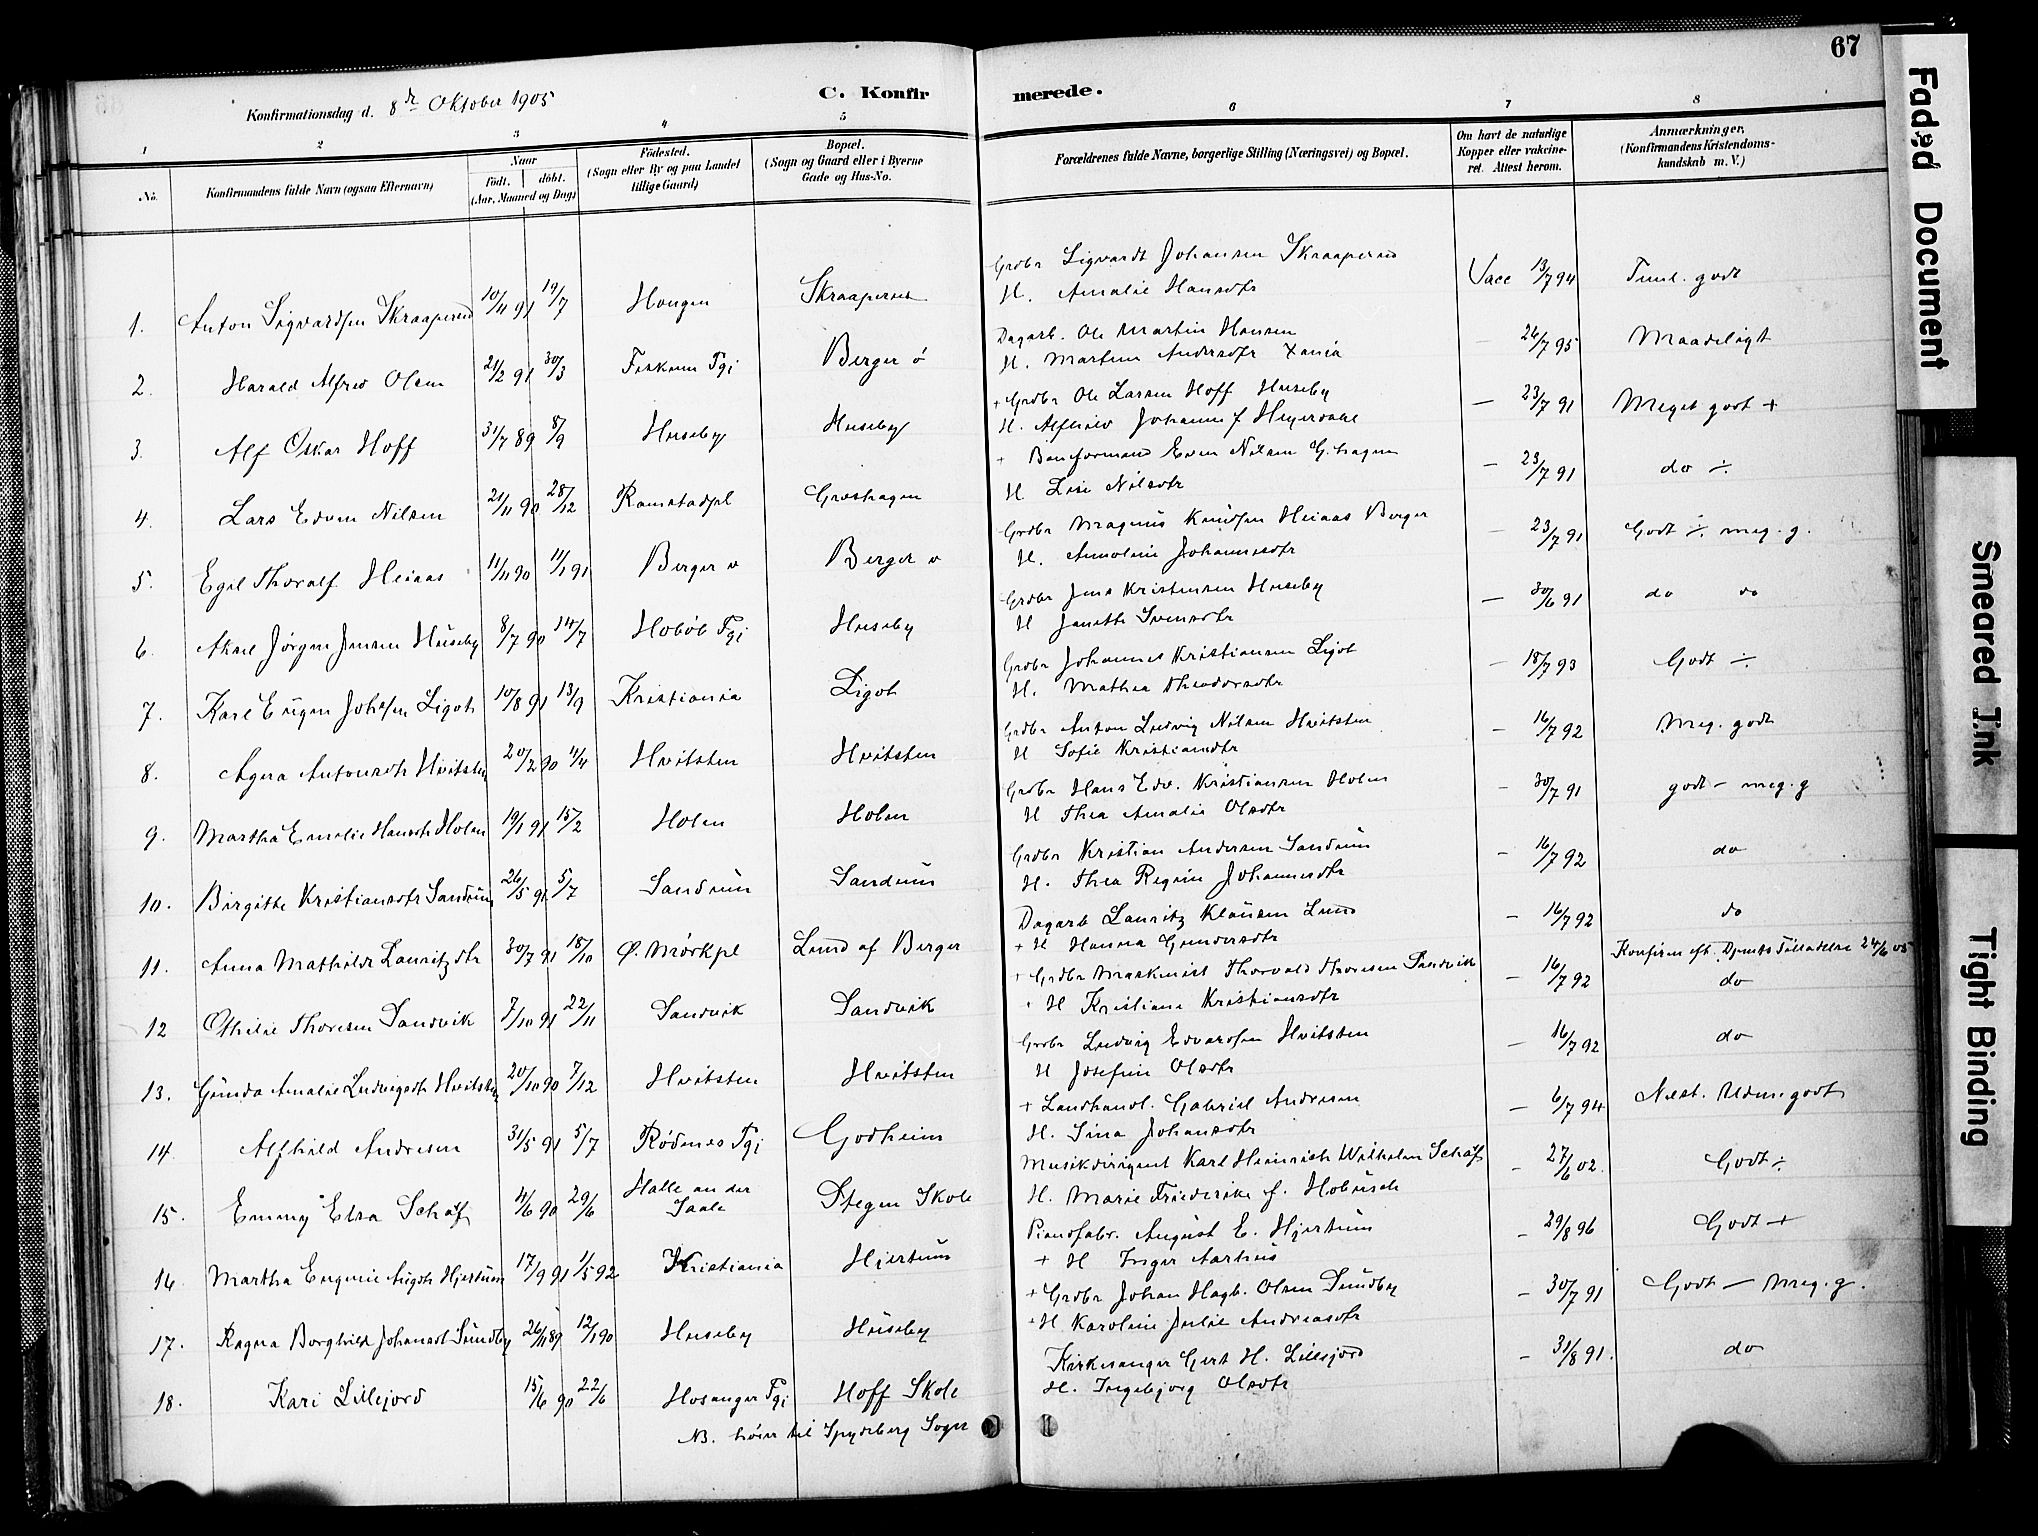 67
Konfirmationsdag d. 8de Oktober 1905
C. Konfirmerede.
1 2 3 4 5 6 7 8
No. Konfirmandens fulde Navn (ogsaa Efternavn) Naar født, døbt. (Aar, Maaned og Dag) Fødested. (Sogn eller By og paa Landet tillige Gaard) Bopæl. (Sogn og Gaard eller i Byerne Gade og Hus-No. Forældrenes fulde Navne, borgerlige Stilling (Næringsvei) og Bopæl. Om havt de naturlige Kopper eller vakcineret. Attest herom. Anmærkninger, (Konfirmandens Kristendomskundskab m. V.)
1. Anton Sigvardsen Skraaperud 10/11 91 19/7 Haugen Skraaperud Grdbr Sigvardt Johansen Skraaperud Vacc 13/7 94 Teml. godt
H. Amalie Hansdtr
2. Harald Alfred Olsen 21/2 91 30/3 Berger ø Dagarb. Ole Martin Hansen — 26/7 95 Maadeligt
H. Martine Andersdtr
3. Alf Oskar Hoff 31/7 89 8/9 Huseby Huseby + Grdbr Ole Larsen Hoff Huseby — 23/7 91 Meget godt +
H. Johanne f. Heyerdahl
4. Lars Edvin Nilsen 21/11 90 28/12 Ramstadpl Græshagen + Baneformand Even Nilsen G.hagen — 23/7 91 do ÷
H Lise Nilsdtr
5. Egil Thoralf Heiaas 11/11 90 11/1 91 Berger v Berger v Grdbr Magnus Knudsen Heiaas Berger — 23/7 91 Godt ÷ meg. g.
H. Annoline Johannesdtr
6. Aksel Jørgen Jensen Huseby 8/7 90 14/7 Hobøl Pgj Huseby Grdbr Jens Kristensen Huseby — 30/6 91 do do
H Janette Svensdtr
7. Karl Eugen Johsen Ligot 10/8 91 13/9 Kristiania Ligot Grdbr Johannes Kristiansen Ligot — 18/7 93 Godt ÷
H. Mathea Theodorsdtr
8. Agna Antonsdtr Hvitsten 20/2 90 4/4 Hvitsten Hvitsten Grdbr Anton Ludvig Nilsen Hvitsten — 16/7 92 Meg. godt
H Sofie Kristiansdtr
9. Martha Emelie Hansdtr Holen 19/1 91 15/2 Holen Holen Grdbr Hans Edv. Kristiansen Holen — 30/7 91 godt — meg. g
H Thea Amalie Olsdtr
10. Birgitte Kristiansdtr Sandum 26/5 91 5/7 Sandum Sandum Grdbr Kristian Andersen Sandum — 16/7 92 do
H. Thea Regine Johannesdtr
11. Anna Mathilde Lauritzdtr 30/7 91 18/10 Ø. Mørkpl Lund af Berger Dagarb Lauritz Klausen Lund — 16/7 92 do
+ H Hanna Gundersdtr
Konfirm eft. Dpmts Tilladelse 24/6 05
12 Othilie Thoresen Sandvik 7/10 91 22/11 Sandvik Sandvik + Grdbr Maskinist Thorvald Thoresen Sandvik — 16/7 92 do
+ H Kristiane Kristiansdtr
13. Gunda Amalie Ludvigsdtr Hvitsten 20/10 90 7/12 Hvitsten Hvitsten Grdbr Ludvig Edvardsen Hvitsten — 16/7 92 do
H Josefine Olsdtr
14. Alfhild Andresen 31/5 91 5/7 Rødenes Pgj Godheim + Landhandl. Gabriel Andresen — 6/7 94 Næst. Udm. godt
H. Sina Johansdtr
15. Emmy Elsa Schäf 4/6 90 29/6 Halle an der Saale Stegen Skole Musikdirigent Karl Heinrich Wilhelm Schäf — 27/6 02. Godt ÷
H. Marie Friederike f. Hobusch
16. Martha Eugenie Augdtr Hjertum 17/9 91 1/5 92 Kristiania Hjertum Pianofabr. August E. Hjertum — 29/8 96 Godt +
+ H Inger Aarhus
17. Ragna Borghild Johansdt Sundby 26/11 89 12/1 90 Huseby Huseby + Grdbr Johan Hagb. Olsen Sundby — 30/7 91 Godt — Meg. g.
+ H Karoline Julie Andreasdtr
18. Kari Lillejord 15/6 90 22/6 Hosanger Pgj Hoff Skole Kirkesanger Gert H. Lillejord — 31/8 91. do
H. Ingebjørg Olsdtr
NB. hører til Spydeberg Sogn
Faded Document
Smeared Ink
Tight Binding